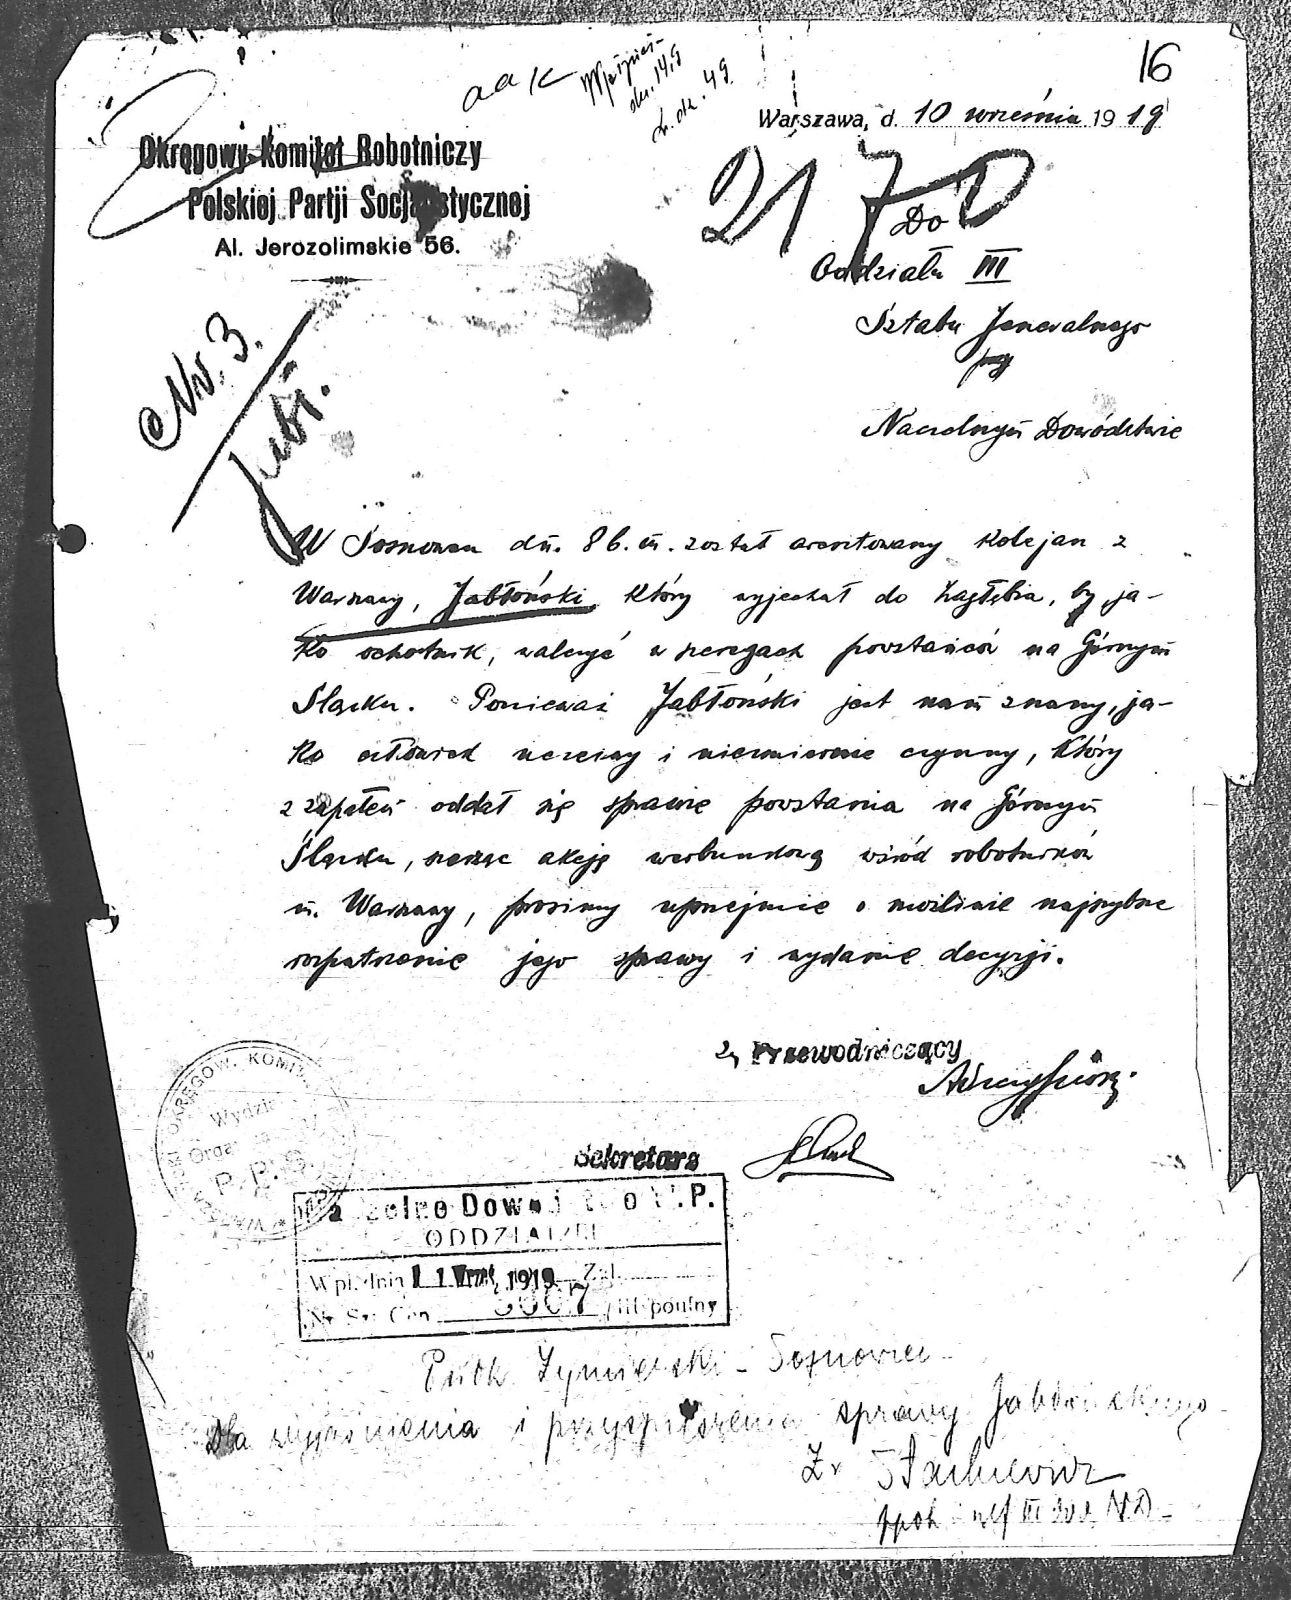 16
a a K
Warszawa, d. 10 września 1919
Okręgowy Komitet Robotniczy
Polskiej Partji Socjalistycznej
Al. Jerozolimskie 56.
217 D
Do
Oddziału III
Sztabu Jeneralnego
przy
Naczelnym Dowództwie
Nr. 3.
W Sosnowcu dn. 8 b.m. został aresztowany kolejarz z
Warszawy, Jabłoński, który wyjechał do Zagłębia, by, ja-
ko ochotnik, walczyć w szeregach powstańców na Górnym
Śląsku. Ponieważ Jabłoński jest nam znany, ja-
ko człowiek uczciwy i niezmiernie czynny, który
z zapałem oddał się sprawie powstania na Górnym
Śląsku, szerząc akcję werbunkową wśród robotników
m. Warszawy, prosimy uprzejmie o możliwie najszybsze
rozpatrzenie jego sprawy i wydanie decyzji.
Przewodniczący
Sekretarz
OKRĘGOW. KOMIT.
Wydział
P.P.S.
Naczelne Dowództwo W.P.
ODDZIAŁ III
Wpł. dnia 11 Wrze. 1919 Zał.
Ppułk. Żymierski - Sosnowiec
Dla wyjaśnienia i przyspieszenia sprawy Jabłońskiego
Stachiewicz
ppłk. i szef III Od. N.D.